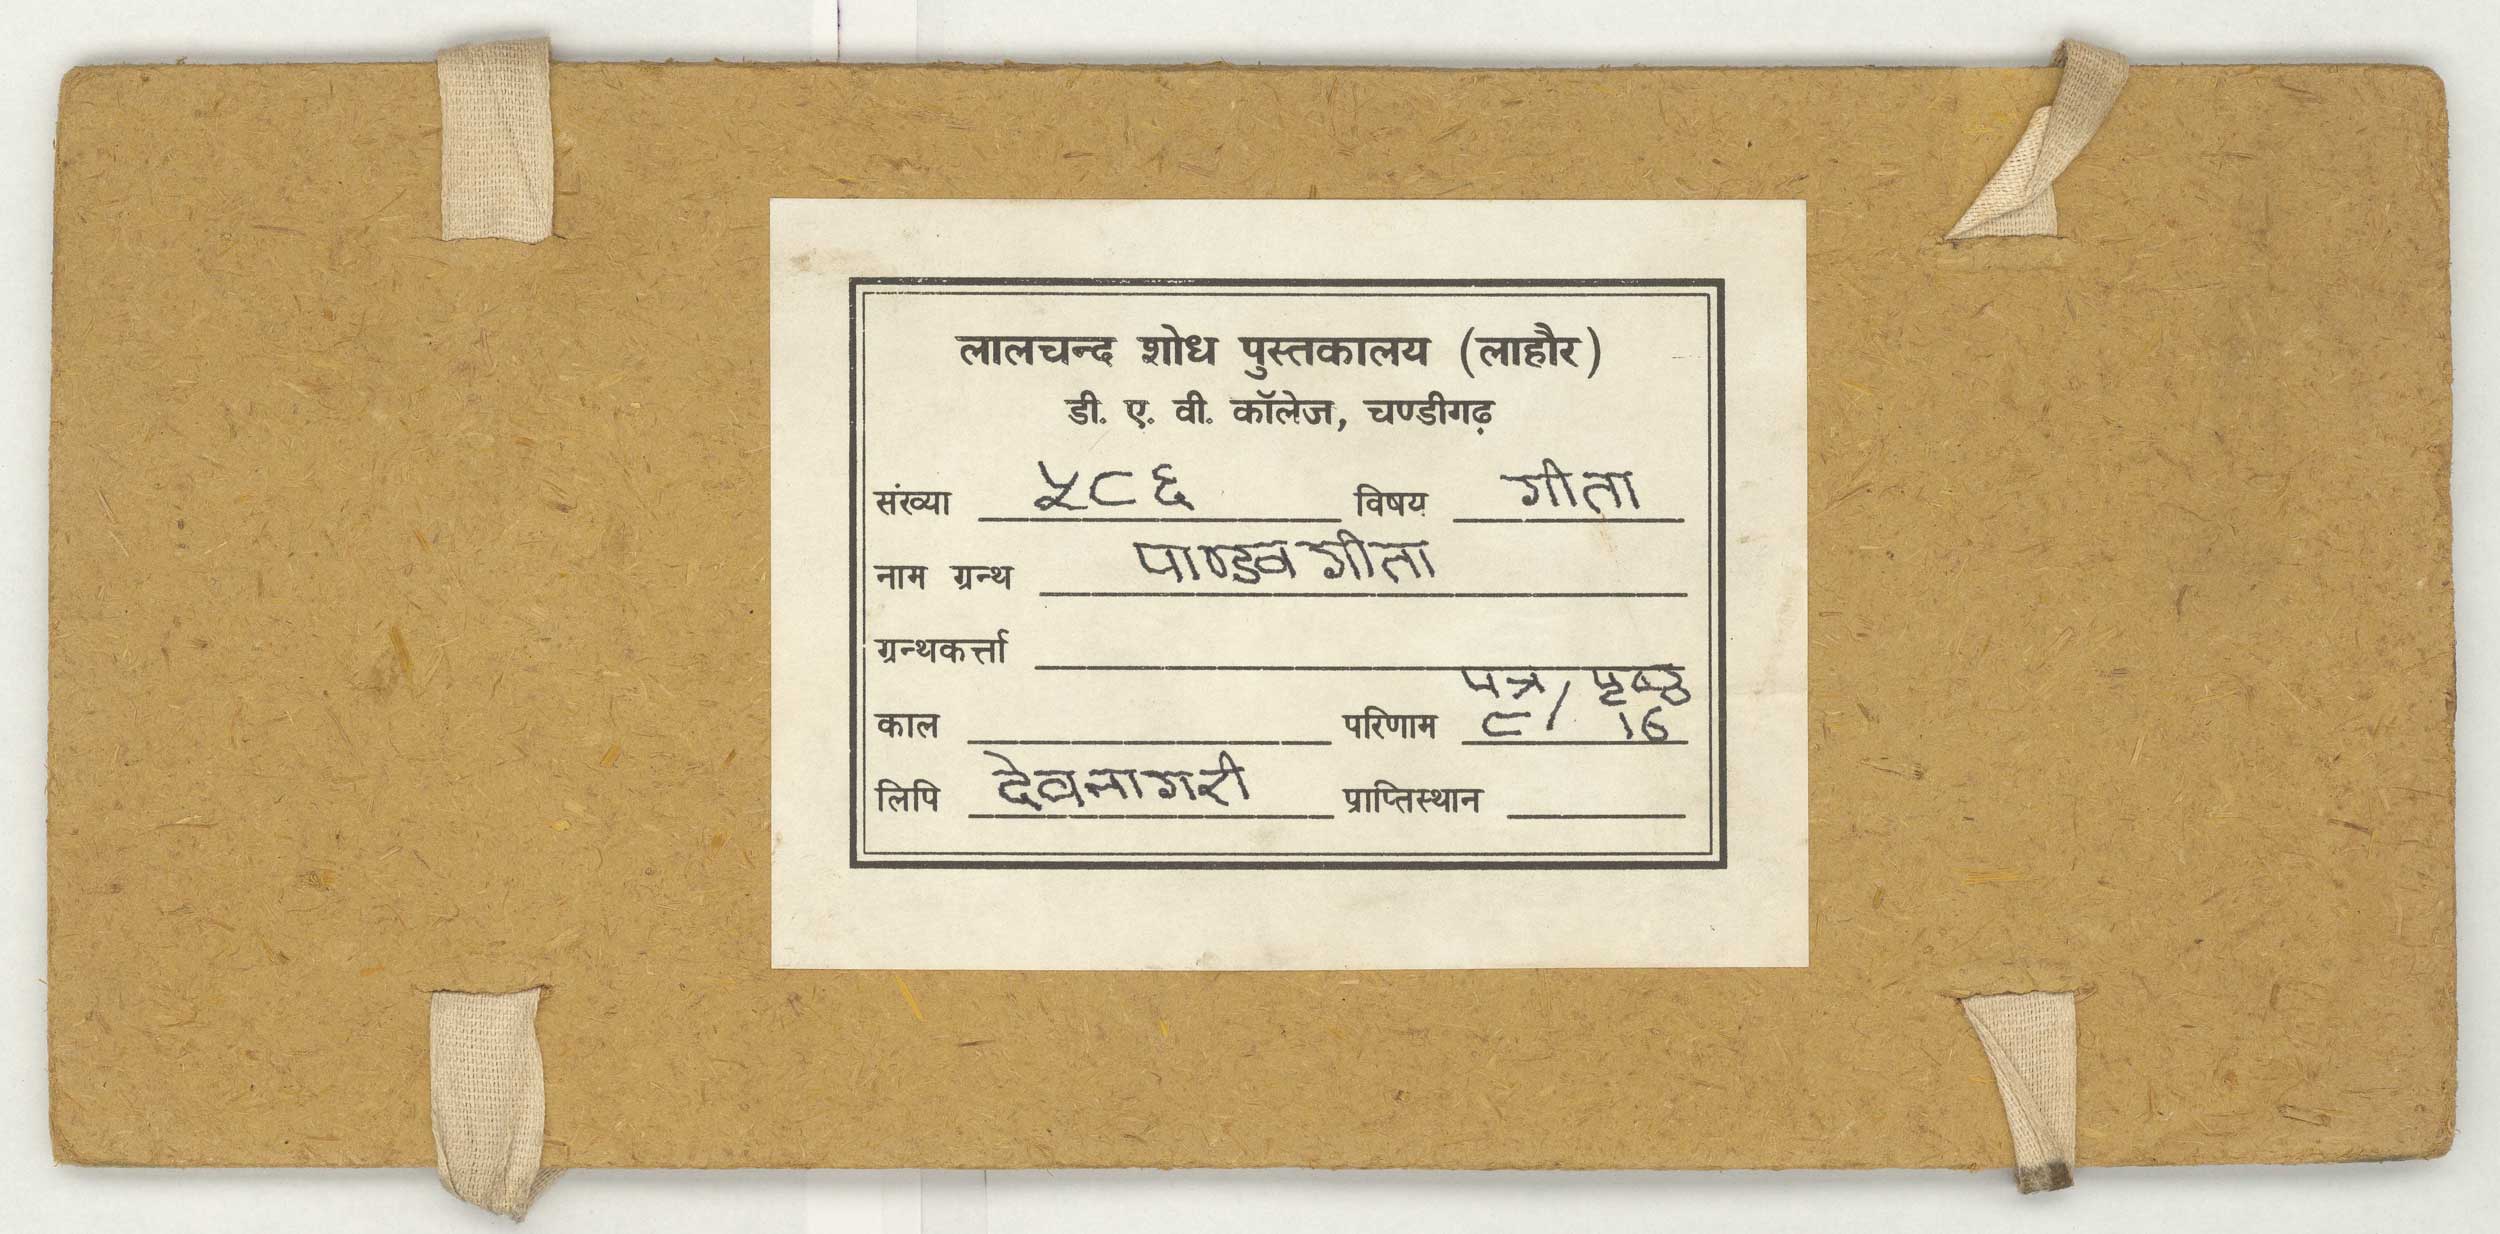 लालचन्द शोध पुस्तकालय (लाहौर)
डी. ए. वी. कॉलेज, चण्डीगढ़
संख्या ५८६ विषय गीता
नाम ग्रन्थ पाण्डव गीता
ग्रन्थकर्त्ता
पत्र / पृष्ठ
काल परिणाम ८ / 16
लिपि देवनागरी प्राप्तिस्थान